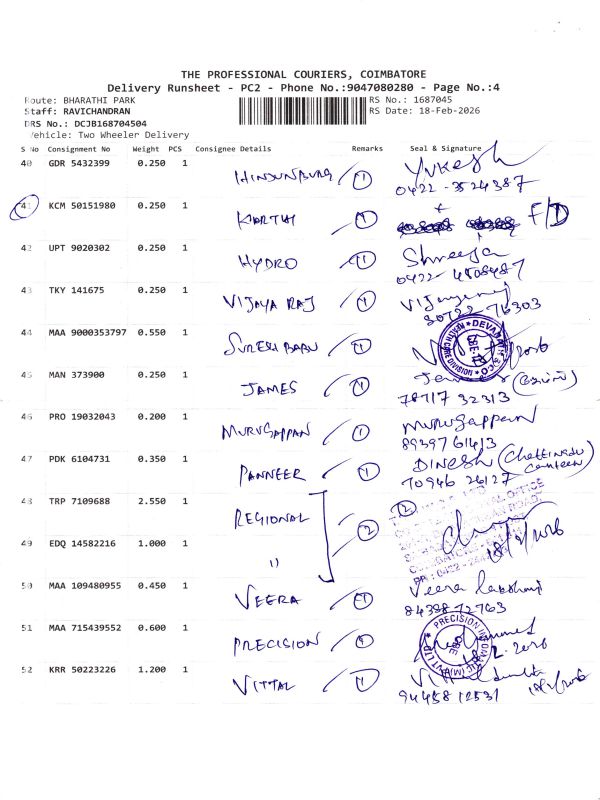 THE PROFESSIONAL COURIERS, COIMBATORE
Delivery Runsheet - PC2 - Phone No.:9047080280 - Page No.:4
Route: BHARATHI PARK RS No.: 1687045
Staff: RAVICHANDRAN RS Date: 18-Feb-2026
DRS No.: DCJB168704504
Vehicle: Two Wheeler Delivery
S No Consignment No Weight PCS Consignee Details Remarks Seal & Signature
40 GDR 5432399 0.250 1 1 Yukesh
0422-3524387
41 KCM 50151980 0.250 1 KARTHI 1 F/D
42 UPT 9020302 0.250 1 HYDRO 1 Shreeja
0422-
43 TKY 141675 0.250 1 VIJAYA RAJ 1
80722-76303
44 MAA 9000353797 0.550 1 SURESH BABU 1 DEVARAJ
45 MAN 373900 0.250 1 JAMES 1
78717 32313
46 PRO 19032043 0.200 1 MURUGAPPAN 1 Murugappan
8939761413
47 PDK 6104731 0.350 1 PANNEER 1 DINESH (Chettinadu canteen)
70946 26127
48 TRP 7109688 2.550 1 REGIONAL 2 2
OFFICE
49 EDQ 14582216 1.000 1 11 18/2/2026
50 MAA 109480955 0.450 1 VEERA 1 Veera Lakshmi
84388 72763
51 MAA 715439552 0.600 1 PRECISION 1 PRECISION
52 KRR 50223226 1.200 1 VITTAL 1 18/2/2026
94458 12531